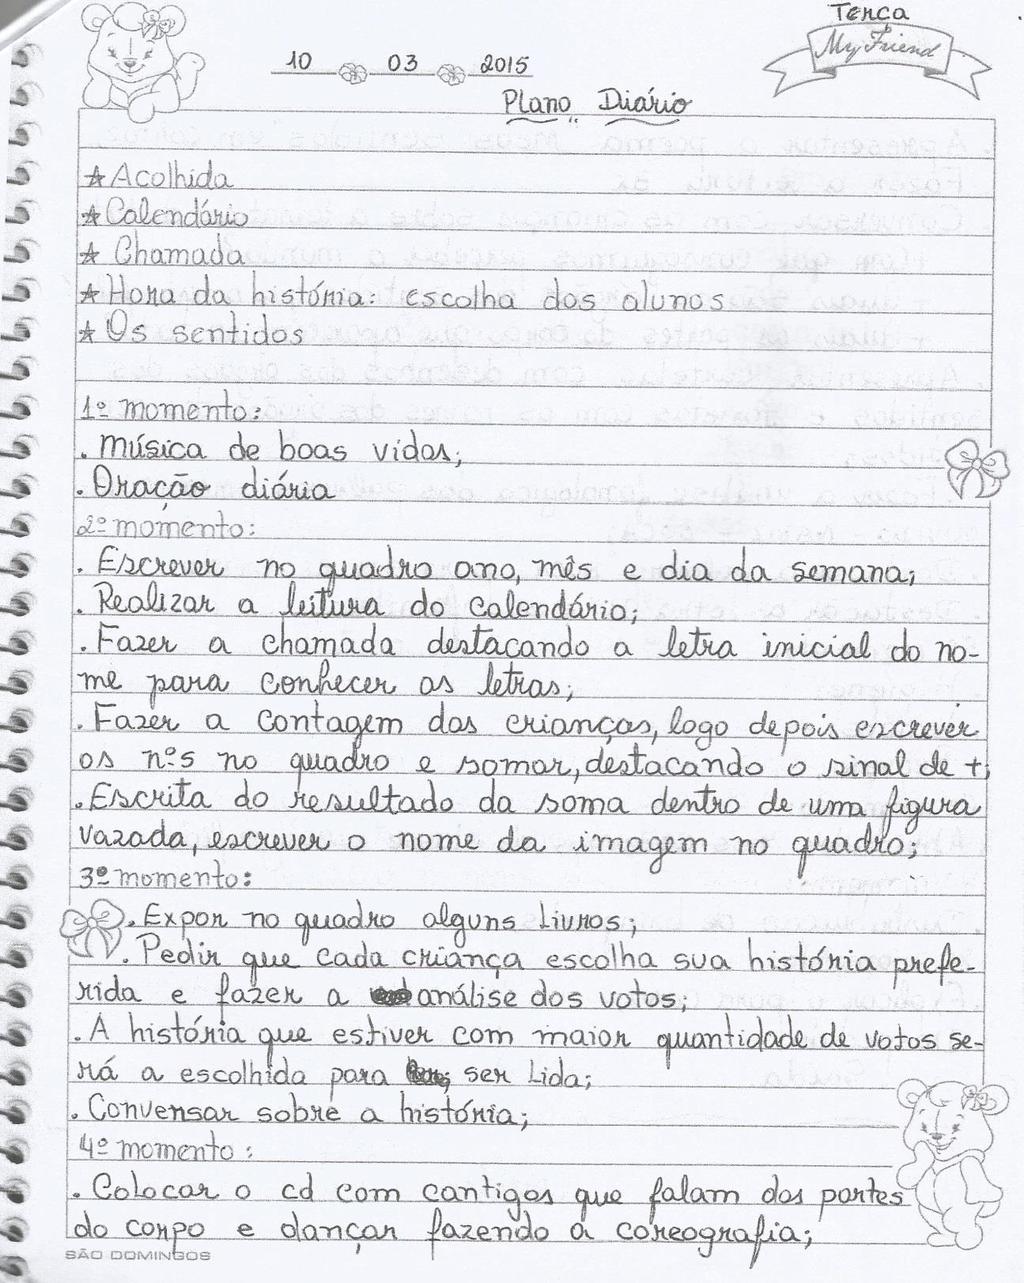 Terça
My Friend
10 03 2015
Plano Diário
★ Acolhida
★ Calendário
★ Chamada
★ Hora da história: escolha dos alunos
★ Os sentidos
1º momento:
. Música de boas vidas;
. Oração diária
2º momento:
. Escrever no quadro ano, mês e dia da semana;
. Realizar a leitura do calendário;
. Fazer a chamada destacando a letra inicial do no-
me para conhecer as letras;
. Fazer a contagem das crianças, logo depois escrever
os nºs no quadro e somar, destacando o sinal de +;
. Escrita do resultado da soma dentro de uma figura
vazada, escrever o nome da imagem no quadro;
3º momento:
. Expor no quadro alguns livros;
. Pedir que cada criança escolha sua história prefe-
rida e fazer a análise dos votos;
. A história que estiver com maior quantidade de votos se-
rá a escolhida para ser lida;
. Conversar sobre a história;
4º momento:
. Colocar o cd com cantigas que falam das partes
do corpo e dançar fazendo a coreografia;
SÃO DOMINGOS